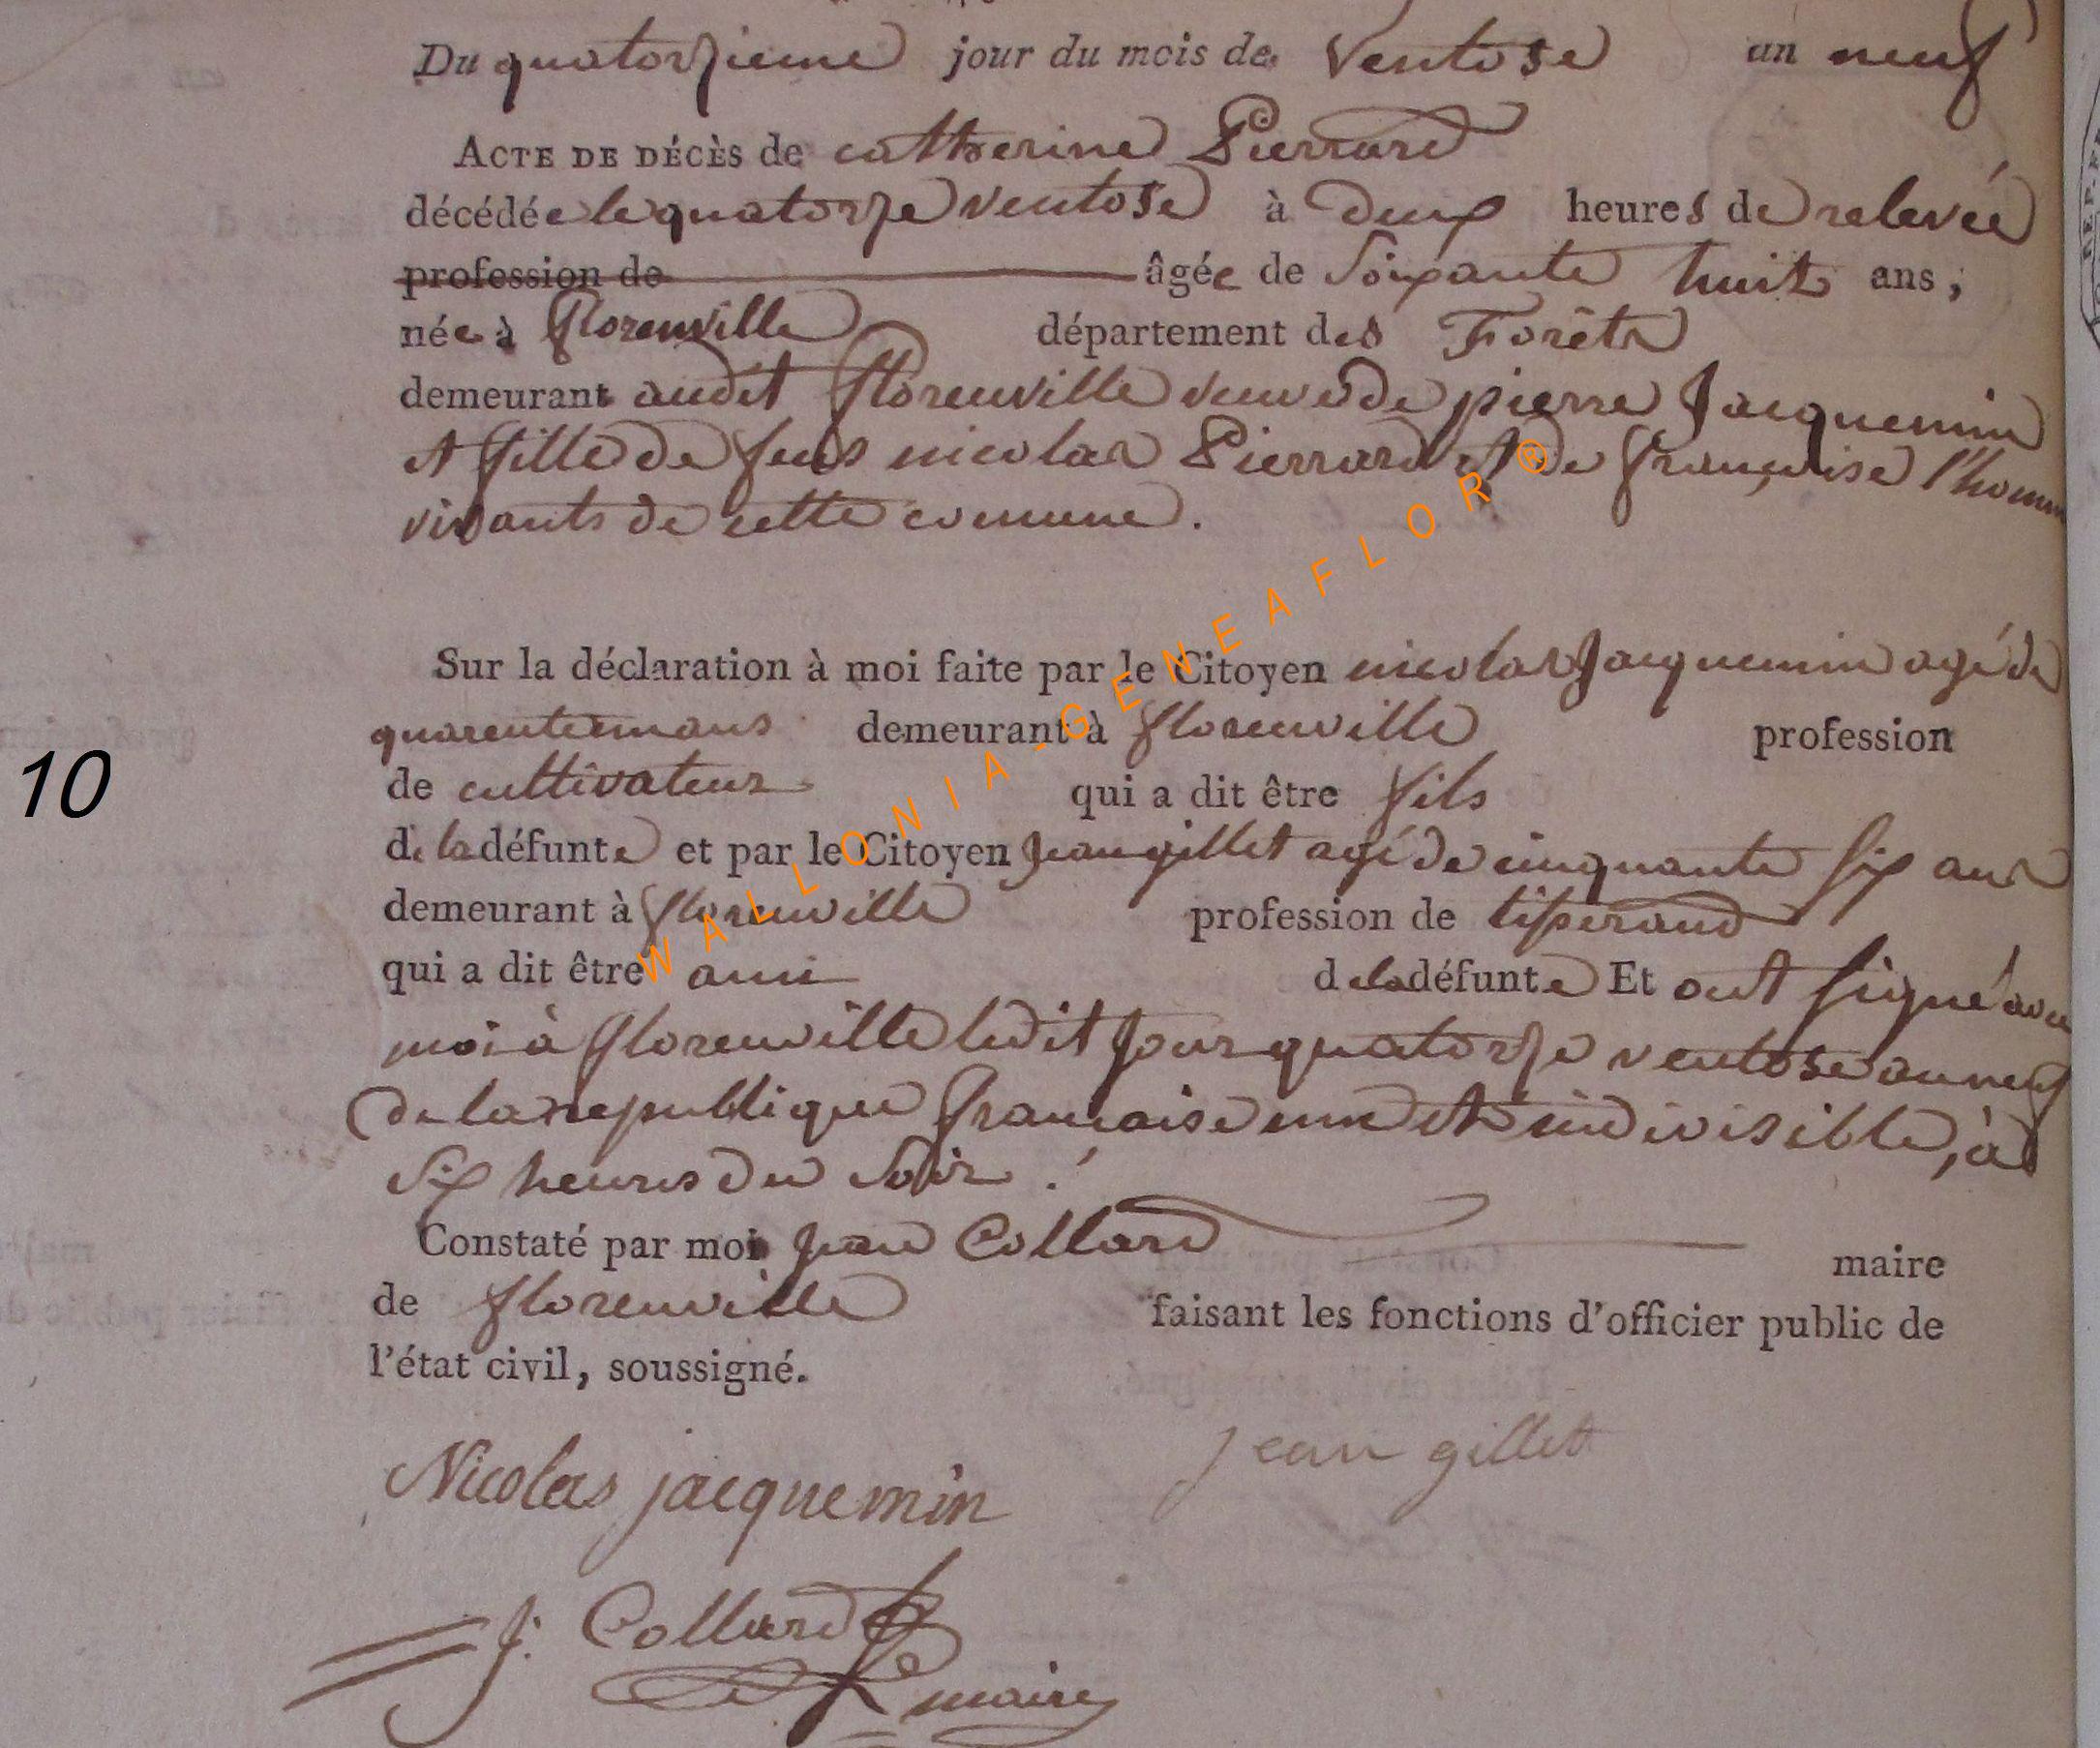 Du quatorzieme jour du mois de Ventose an neuf
ACTE DE DÉCÈS de catherine Pierrard
décédée le quatorze ventose à deux heures de relevée
profession de âgée de Soixante huit ans ;
née à florenville département des Forêts
demeurant audit florenville veuve de pierre Jacquemin
et fille de feus nicolas Pierrard et de françoise l'homm
vivants de cette comune .
Sur la déclaration à moi faite par le Citoyen nicolas Jacquemin agé de
demeurant à florenville profession
de cultivateur qui a dit être fils
de la défunte et par le Citoyen Jean gillet agé de cinquante six ans
demeurant à florenville profession de tisserand
qui a dit être ami de la défunte Et ont signé avec
moi à florenville ledit Jour quatorze ventose an neuf
de la republique française une et indivisible, à
Six heures du Soir .
Constaté par moi Jean Collard maire
de florenville faisant les fonctions d'officier public de
l'état civil, soussigné.
Nicolas jacquemin
jean gillet
J. Collard
maire
10
WALLONIA-GENEAFLOR®